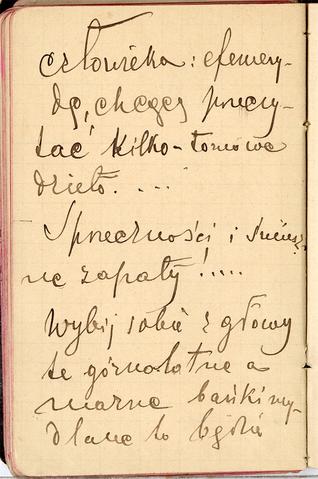 człowieka: efemery-
dę, chcącą przeczy-
tać kilko-tomowe
dzieło. ...
Sprzeczności i śmiesz-
ne zapały!.....
Wybij sobie z głowy
te górnolotne a
marne bańki my-
dlane bo będzie